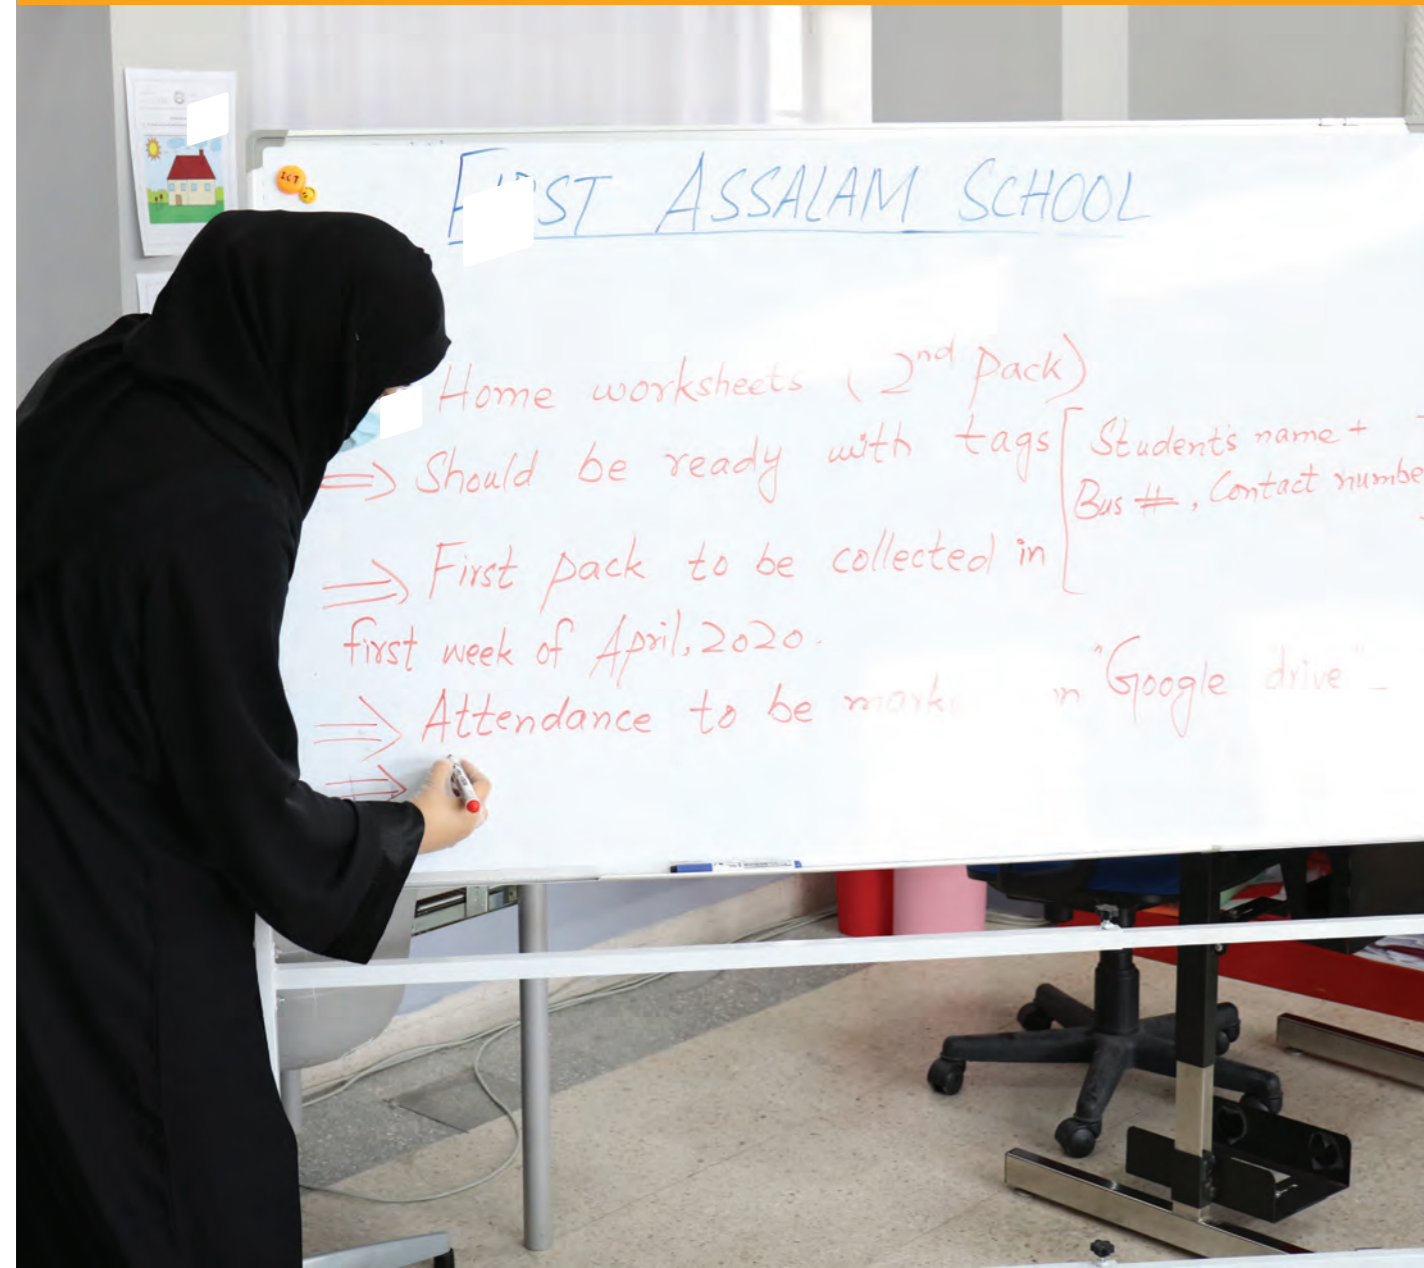 ICT
FIRST ASSALAM SCHOOL
Home worksheets (2nd pack)
⇒ Should be ready with tags [ Student's name +
Bus #, Contact numbe
⇒ First pack to be collected in
first week of April, 2020.
⇒ Attendance to be in "Google drive"
⇒